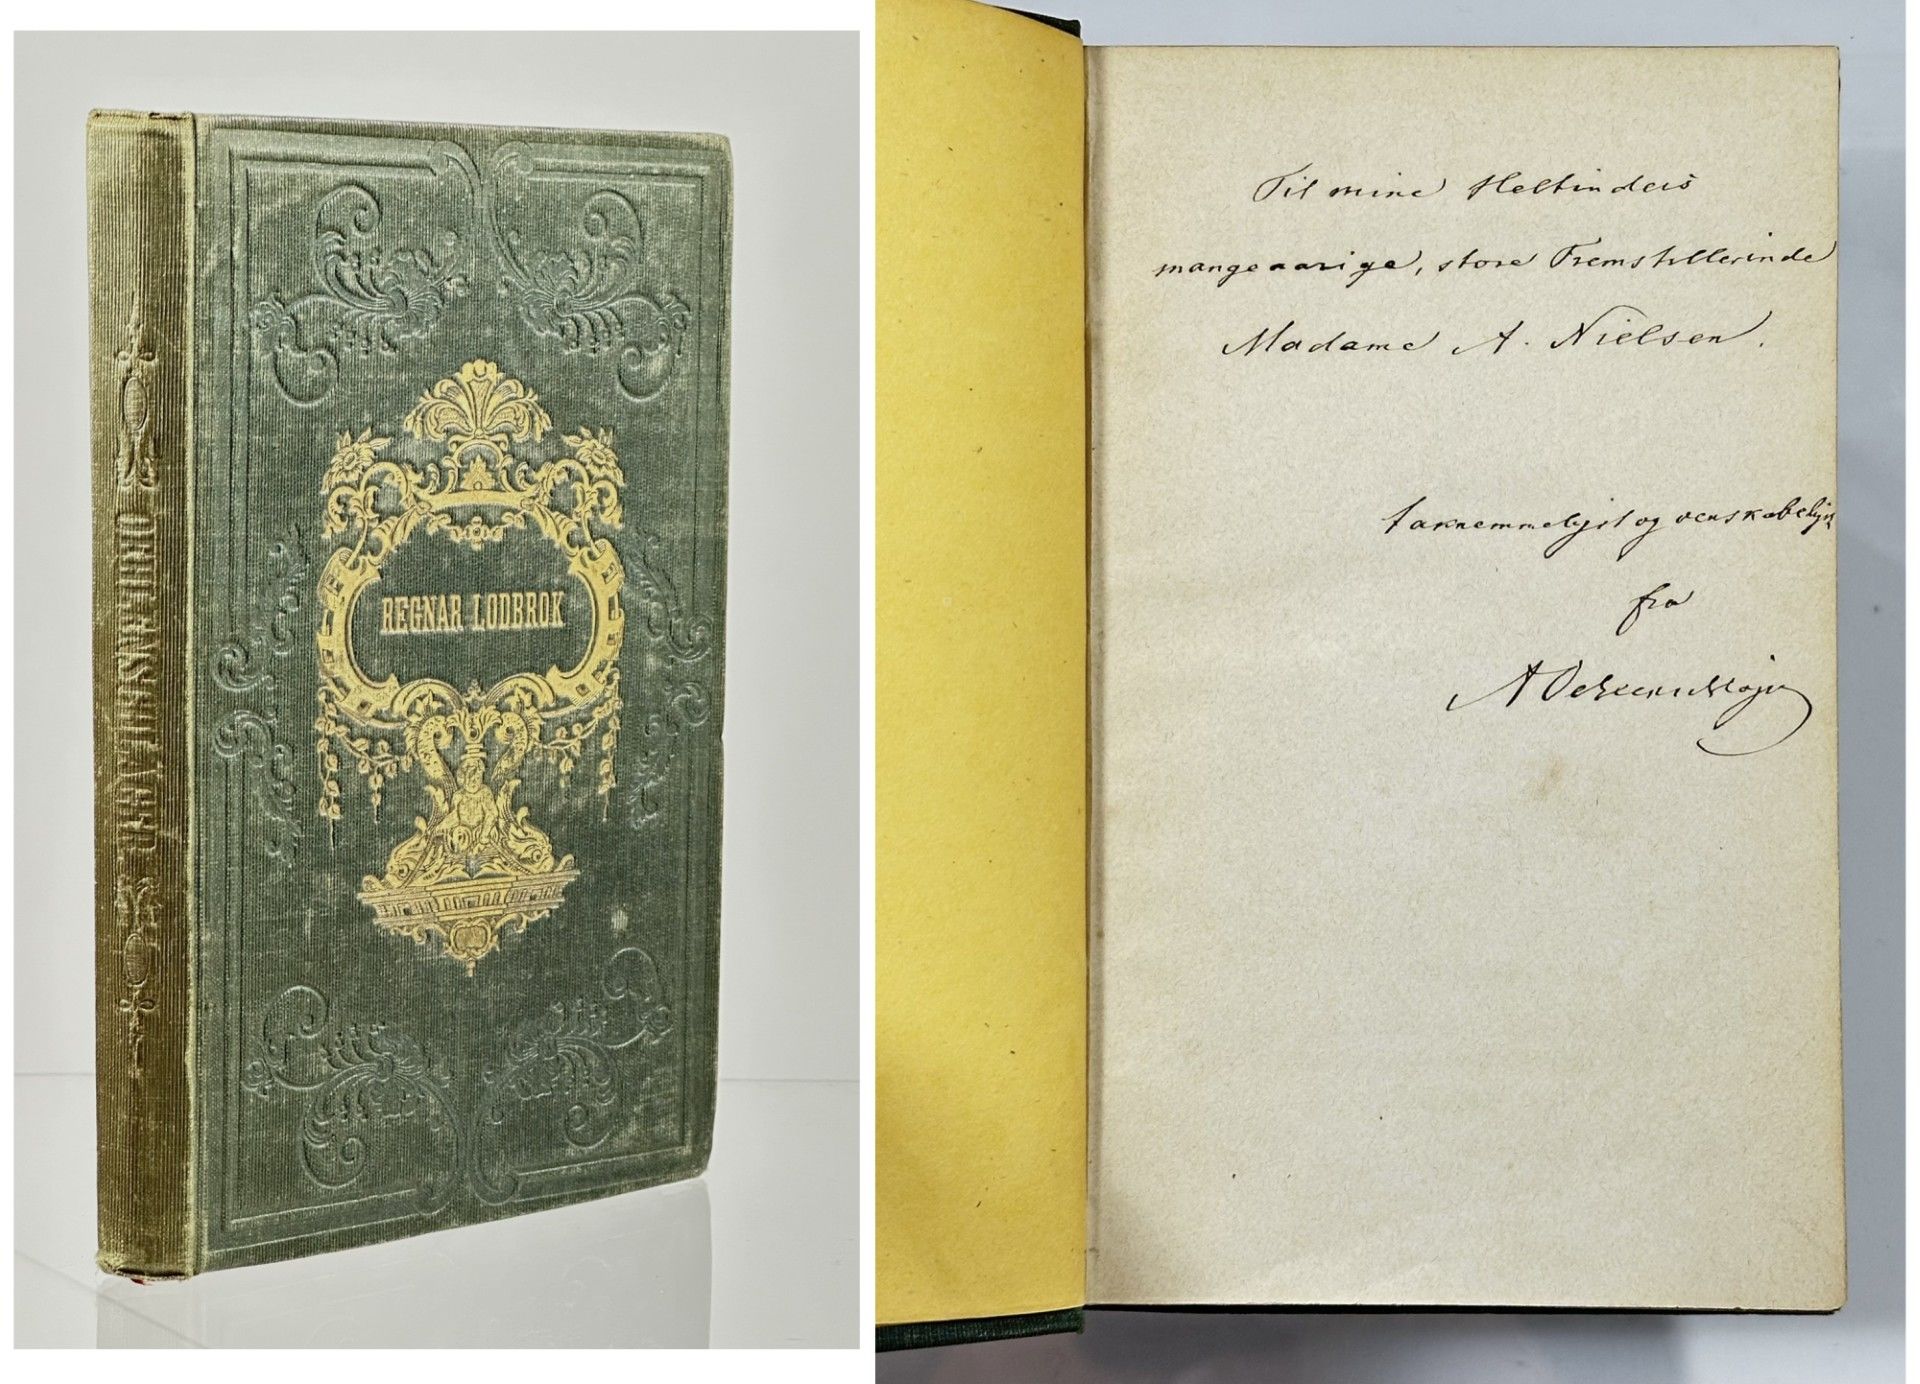 OEHLENSCHLÄGER
REGNAR LODBROK
Til mine Heltinders
mangeaarige, store Fremstillerinde
Madame A. Nielsen.
taknemmeligst og venskabeligst
fra
A Oehlenschläger